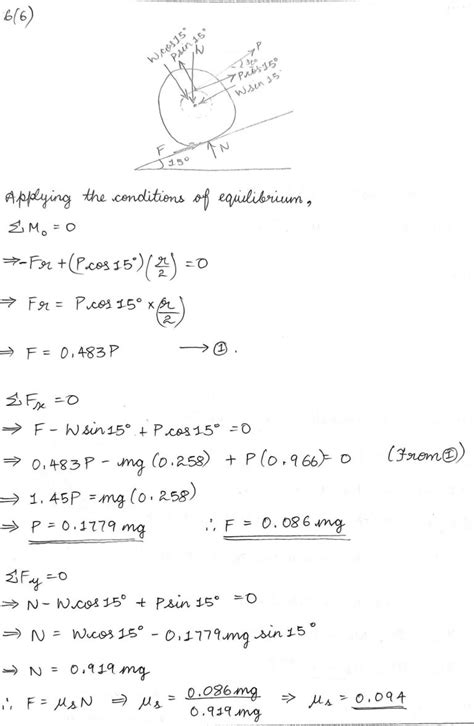 6(6)
Wcos15°
Psin15°
N
P
Pcos15°
Wsin15
F
N
15°
Applying the conditions of equilibrium,
ΣMₒ = 0
⇒ -Fr + (P.cos15°)(r/2) = 0
⇒ Fr = P.cos15° × (r/2)
⇒ F = 0.483P → ①.
ΣFₓ = 0
⇒ F - Wsin15° + P.cos15° = 0
⇒ 0.483P - mg (0.258) + P(0.966) = 0 (From ①)
⇒ 1.45P = mg (0.258)
⇒ P = 0.1779 mg ∴ F = 0.086 mg
ΣFy = 0
⇒ N - W.cos15° + Psin15° = 0
⇒ N = W.cos15° - 0.1779.mg sin15°
⇒ N = 0.919 mg
∴ F = μₛN ⇒ μₛ = 0.086mg/0.919mg ⇒ μₛ = 0.094